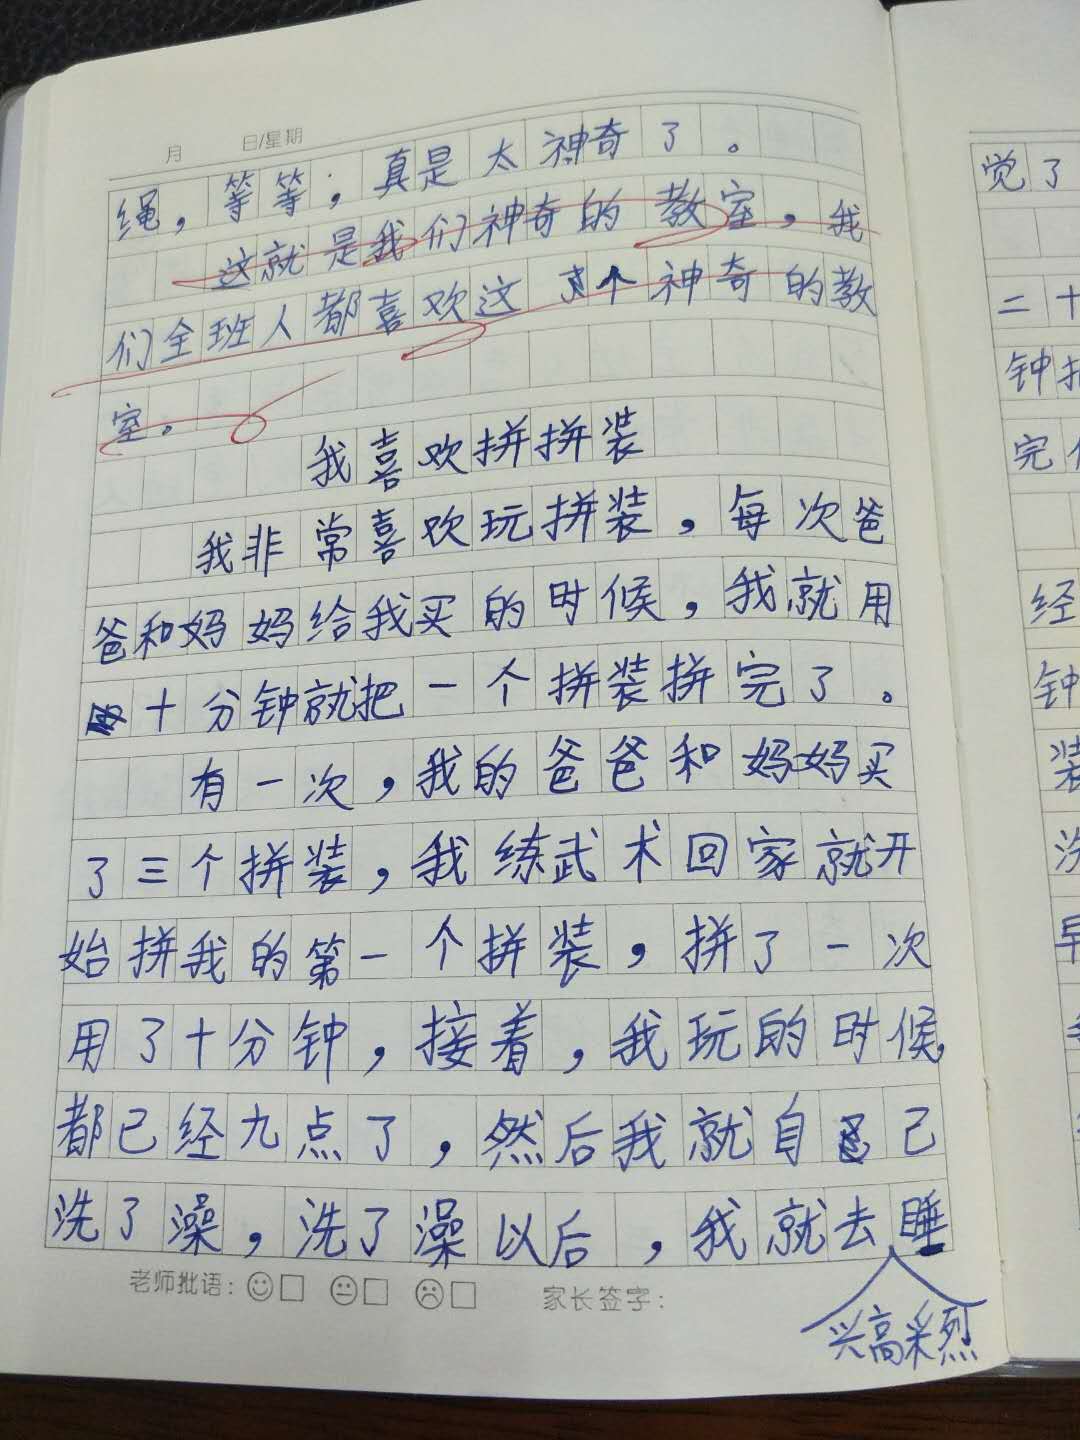 月 日/星期
绳，等等；真是太神奇了。
这就是我们神奇的教室，我
们全班人都喜欢这个神奇的教
室。
我喜欢拼拼装
我非常喜欢玩拼装，每次爸
爸和妈妈给我买的时候，我就用
十分钟就把一个拼装拼完了。
有一次，我的爸爸和妈妈买
了三个拼装，我练武术回家就开
始拼我的第一个拼装，拼了一次
用了十分钟，接着，我玩的时候，
都已经九点了，然后我就自己
洗了澡，洗了澡以后，我就去睡
兴高采烈
老师批语： 家长签字：
觉了
二十
钟
完
经
钟
装
洗
早